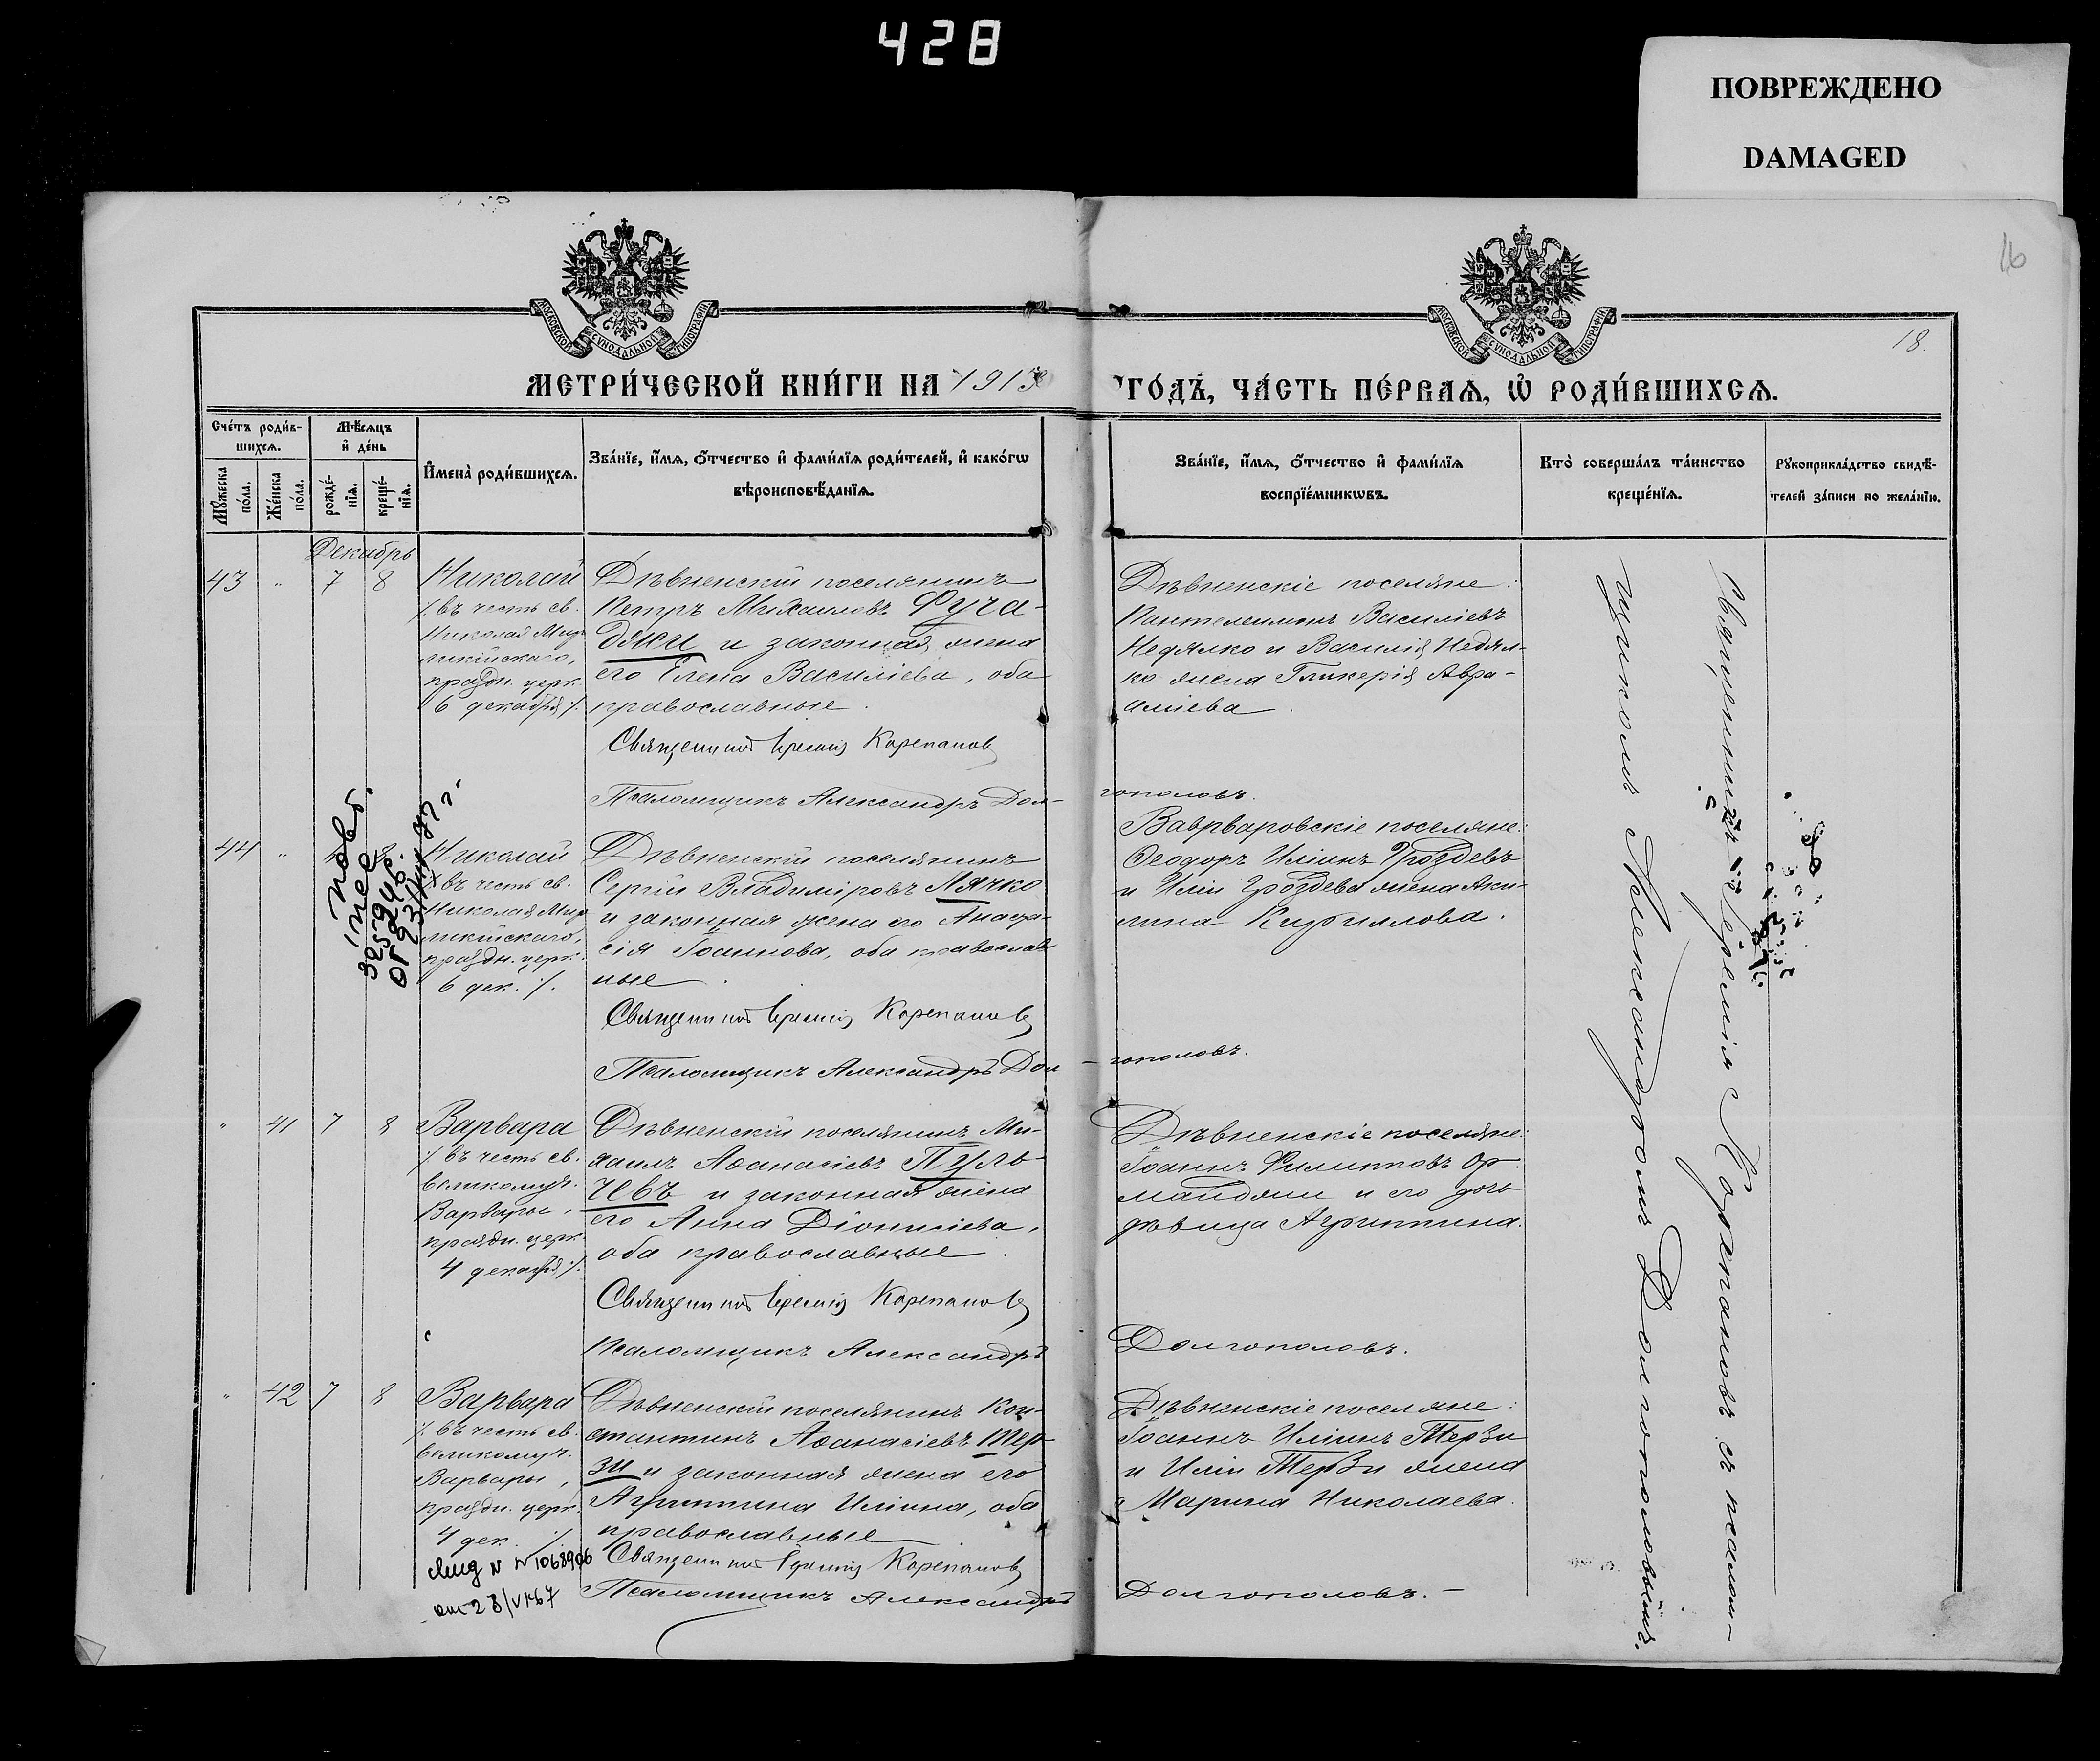 428
ПОВРЕЖДЕНО
DAMAGED
16
18.
МОСКОВСКОЙ СѴНОДАЛЬНОЙ ТИПОГРАФІИ
МОСКОВСКОЙ СѴНОДАЛЬНОЙ ТИПОГРАФІИ
МЕТРИ́ЧЕСКОЙ КНИ́ГИ НА 1913
ГО́ДЪ, ЧА́СТЬ ПЕ́РВАѦ, Ѡ҆ РОДИ́ВШИХСѦ.
Сче́тъ роди́в-
шихсѧ.
Мꙋ́жеска по́ла.
Же́нска по́ла.
Мѣ́сѧцъ
и҆ де́нь
рожде́-
нїѧ.
креще́-
нїѧ.
И҆мена̀ роди́вшихсѧ.
Зва́нїе, и҆́мѧ, ѻ҆́тчество и҆ фами́лїѧ роди́телей, и҆ како́гѡ
вѣроисповѣ́данїѧ.
Зва́нїе, и҆́мѧ, ѻ҆́тчество и҆ фами́лїѧ
воспрїе́мникѡвъ.
Кто̀ соверша́лъ та́инство
креще́нїѧ.
Рꙋкоприкла́дство свидѣ́-
телей за́писи по жела́нїю.
Декабрь
43 " 7 8
Николай
/. въ честь св.
Николая Мир-
ликійскаго,
праздн. церк.
6 декабря /.
Дѣвненскій поселянинъ
Петръ Михаиловъ Фуча-
джи и законная жена
его Елена Василіева, оба
православные.
Священникъ Іеремія Корепановъ
Псаломщикъ Александръ Дол-
Дѣвненскіе поселяне:
Пантелеимонъ Василіевъ
Недялко и Василія Недял-
ко жена Гликерія Авра-
аміева.
гополовъ.
44 " 8
Николай
/. въ честь св.
Николая Мир-
ликійскаго,
праздн. церк.
6 дек. /.
Дѣвненскій поселянинъ
Сергій Владиміровъ Лячко
и законная жена его Анаста-
сія Іоаннова, оба православ
ные.
Священникъ Іеремія Корепановъ
Псаломщикъ Александръ Дол
Ваврваровскіе поселяне:
Ѳеодоръ Иліинъ Гроздевъ
и Иліи Гроздева жена Аки-
лина Кириллова.
- гополовъ.
повт.
" 41 7 8
Варвара
/. въ честь св.
великомуч.
Варвары,
праздн. церк.
4 декабря /.
Дѣвненскій поселянинъ Ми-
хаилъ Аѳанасіевъ Пуль-
чевъ и законная жена
его Анна Діонисіева,
оба православные.
Священникъ Іеремія Корепановъ
Псаломщикъ Александръ
Дѣвненскіе поселяне:
Іоаннъ Филипповъ Ор-
манджи и его дочь
дѣвица Агриппина.
Долгополовъ.
" 42 7 8
Варвара
/. въ честь св.
великомуч.
Варвары,
праздн. церк.
4 дек. /.
Дѣвненскій поселянинъ Кон-
стантинъ Аѳанасіевъ Тер-
зи и законная жена его
Агриппина Иліина, оба
православные
Священникъ Іеремія Корепановъ
Псаломщикъ Александръ
Дѣвненскіе поселяне:
Іоаннъ Иліинъ Терзи
и Иліи Терзи жена
Марина Николаева.
Долгополовъ. -
N 1068906
Священникъ Іеремія Корепановъ съ псалом-
щикомъ Александромъ Долгополовымъ.